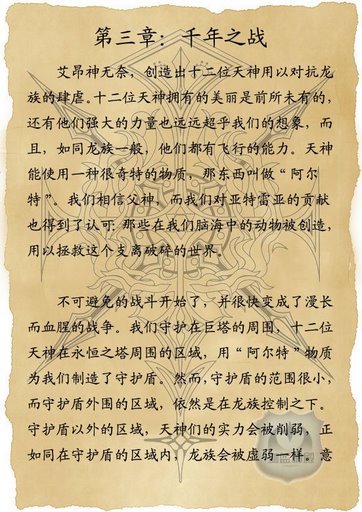 第三章：千年之战
艾昂神无奈，创造出十二位天神用以对抗龙
族的肆虐。十二位天神拥有的美丽是前所未有的，
还有他们强大的力量也远远超乎我们的想象，而
且，如同龙族一般，他们都有飞行的能力。天神
能使用一种很奇特的物质，那东西叫做“阿尔
特”。我们相信父神，而我们对亚特雷亚的贡献
也得到了认可：那些在我们脑海中的动物被创造，
用以拯救这个支离破碎的世界。
不可避免的战斗开始了，并很快变成了漫长
而血腥的战争。我们守护在巨塔的周围，十二位
天神在永恒之塔周围的区域，用“阿尔特”物质
为我们制造了守护盾。然而，守护盾的范围很小，
而守护盾外围的区域，依然是在龙族控制之下。
守护盾以外的区域，天神们的实力会被削弱，正
如同在守护盾的区域内，龙族会被虚弱一样。意